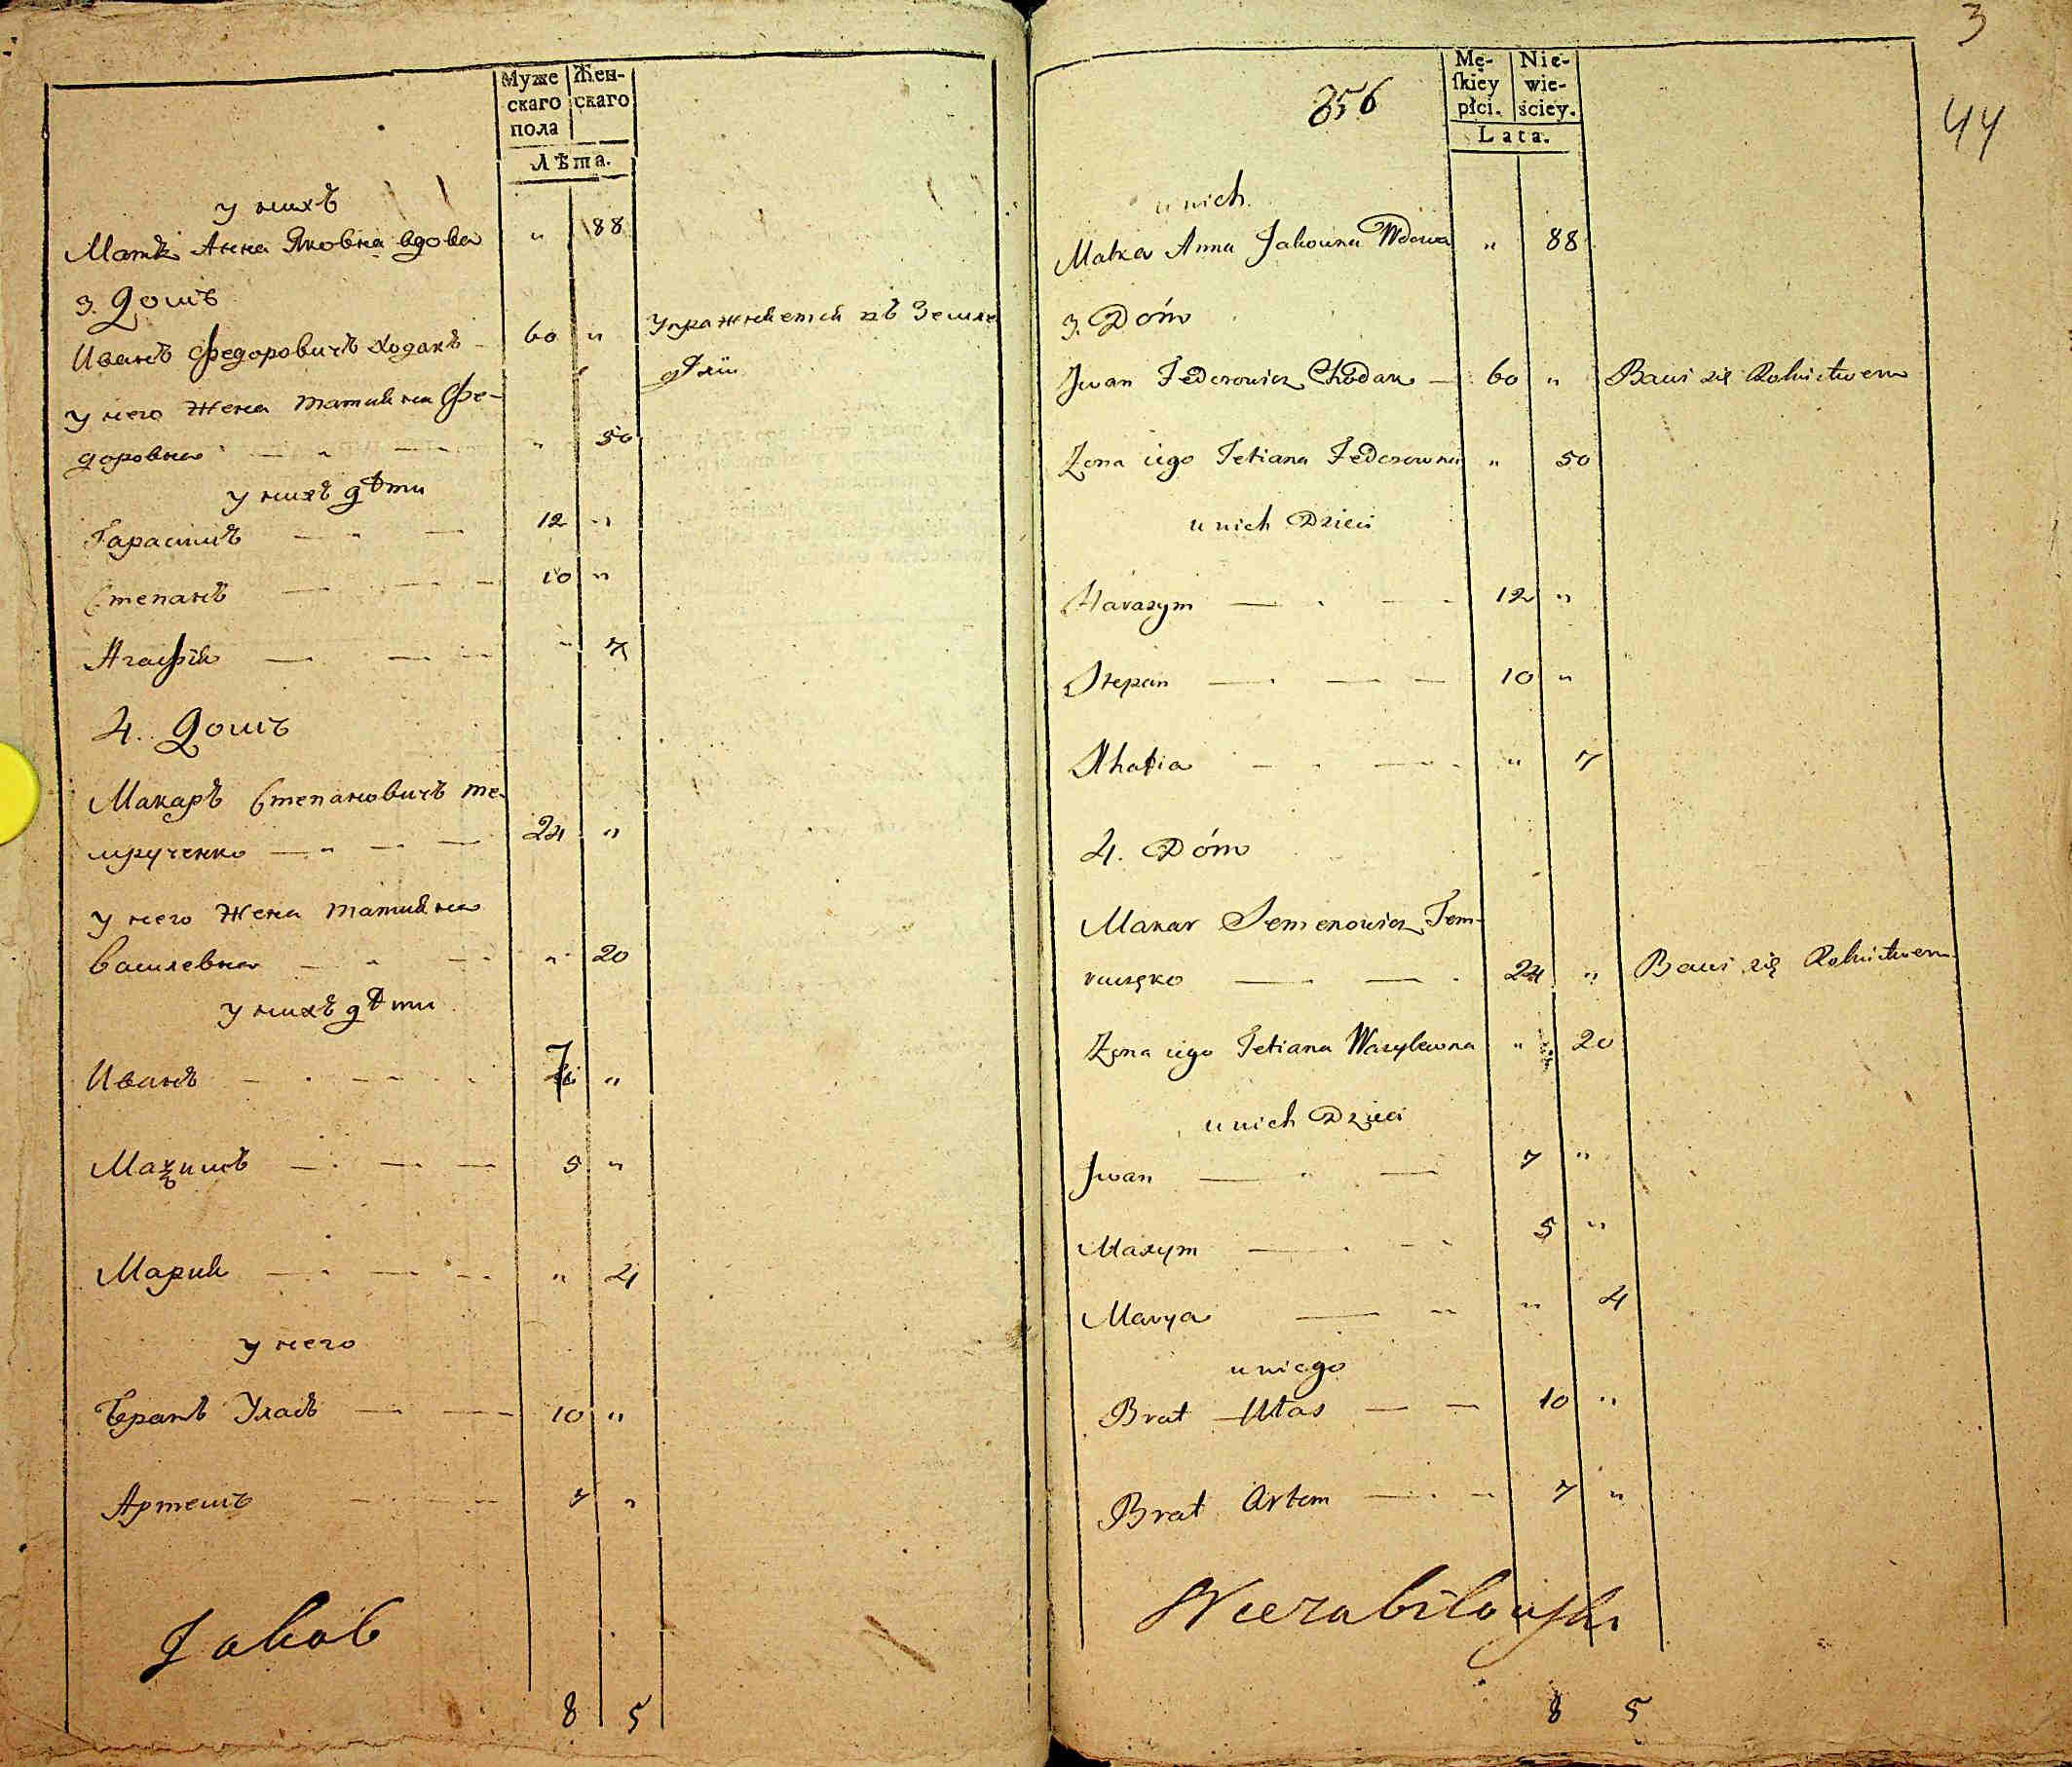 Муже Жен-
скаго скаго
пола
Лѣта.
у нихъ
Матъ Анна Яковна вдова " 88
3. Домъ
Иванъ Федоровичъ Ходакъ - 60 " Упражняется въ Земле
дѣліи
у него Жена Татияна Фе-
доровна " 50
у нихъ дѣти
Гарасимъ 12 "
Степанъ 10 "
Агафія " 7
4. Домъ
Макаръ Степановичъ Те-
мрученко 24 "
у него Жена Татияна
Василевна " 20
у нихъ дѣти
Иванъ 7 "
Маѯимъ 5 "
Мария " 4
у него
Братъ Уласъ 10 "
Артемъ 7 "
Jakob
8 5
3
44
856
Mę- Nie-
ſkiey wie-
płci. ściey.
Lata.
u nich
Matka Anna Jakowna Wdowa " 88
3. Dóm
Jwan Fedorowicz Chodak - 60 " Bawi się Rolnictwem
Zona iego Tetiana Fedorowna " 50
u nich Dzieci
Harasym 12 "
Stepan 10 "
Ahafia " 7
4. Dóm
Makar Semenowicz Tem-
ruczęko 24 " Bawi się Rolnictwem
Zona iego Tetiana Wasylewna " 20
u nich Dzieci
Jwan 7 "
Maxym 5 "
Marya " 4
u niego
Brat Ułas 10 "
Brat Artem 7 "
8 5